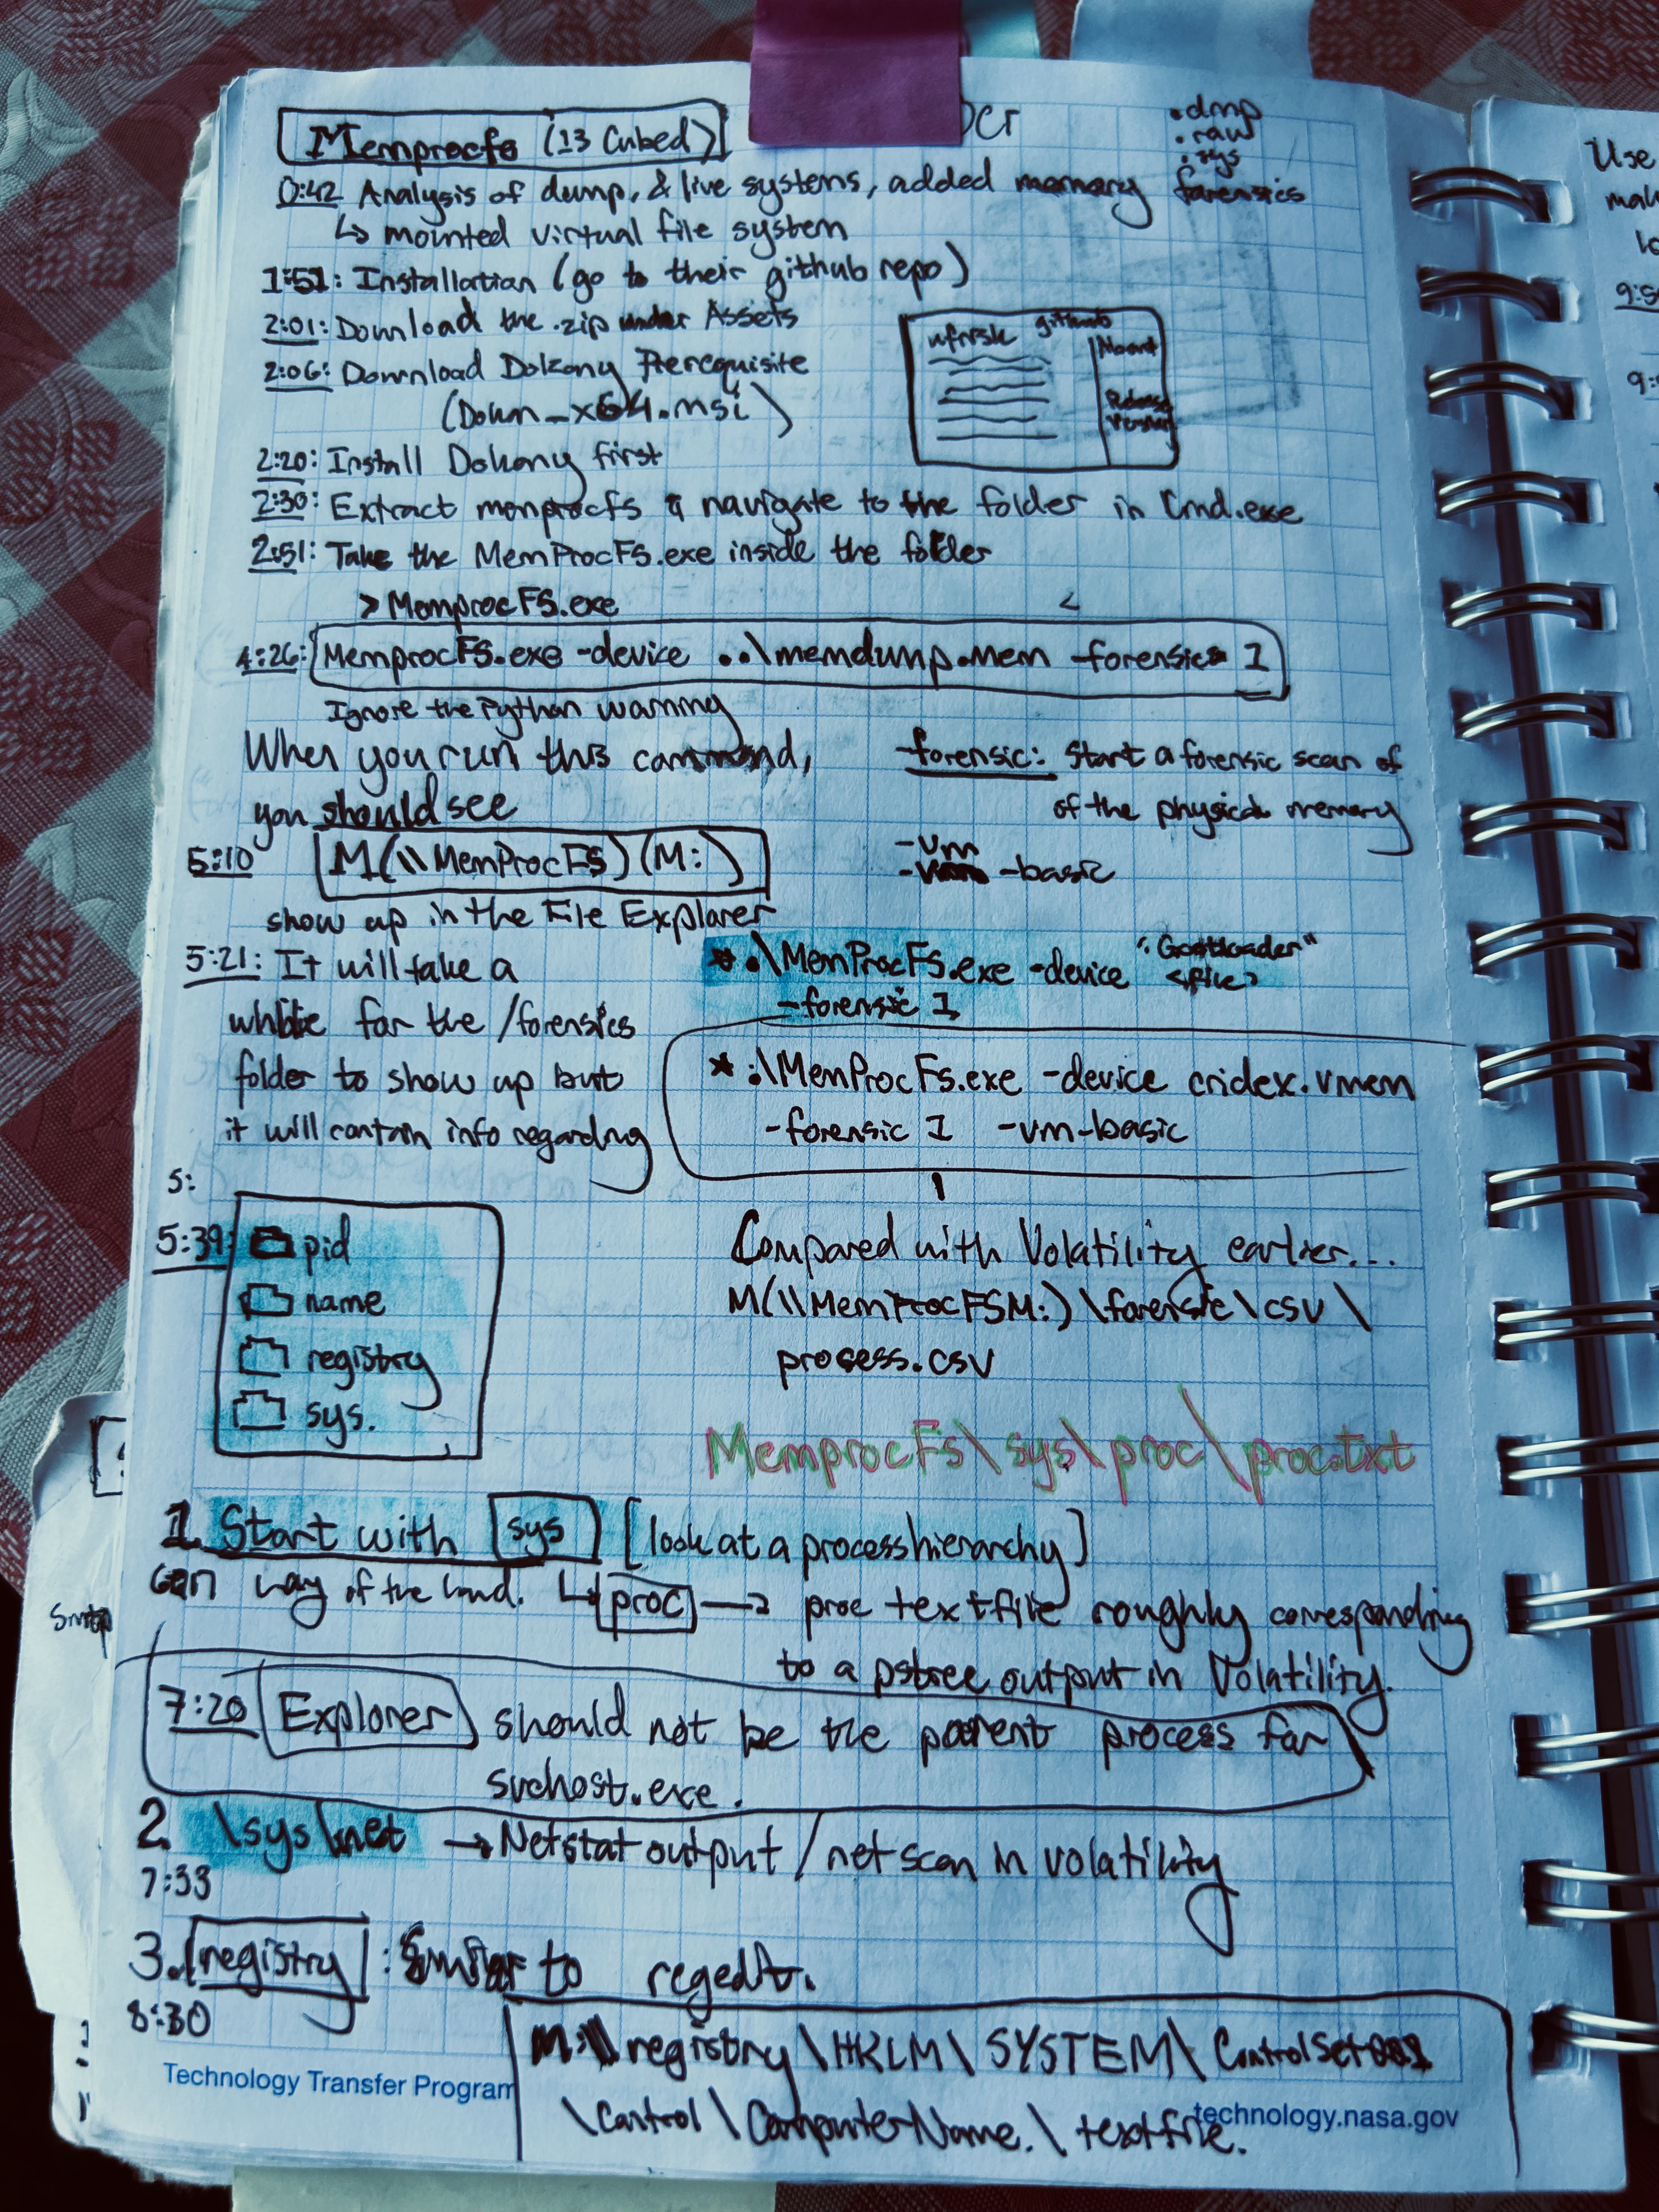 Memprocfs (13 Cubed)
.dmp
.raw
.sys
0:42 Analysis of dump, & live systems, added memory forensics
↳ mounted virtual file system
1:51: Installation (go to their github repo)
2:01: Download the .zip under Assets
2:06: Download Dokany Prerequisite
(Dokan_x64.msi)
ufrisk github
Release
Version
2:20: Install Dokany first
2:30: Extract memprocfs & navigate to the folder in Cmd.exe
2:51: Take the MemProcFS.exe inside the folder
> MemprocFS.exe
4:26: MemprocFS.exe -device ..\memdump.mem -forensic 1
Ignore the Python warning
When you run this command,
you should see
-forensic: Start a forensic scan of
of the physical memory
-vm
-basic
5:10 M(\\MemProcFS)(M:)
show up in the File Explorer
5:21: It will take a
while for the /forensics
folder to show up but
it will contain info regarding
* .\MemProcFS.exe -device "Gootloader"
<file>
-forensic 1
* .\MemProcFs.exe -device cridex.vmem
-forensic 1 -vm-basic
5:
5:39: pid
name
registry
sys.
Compared with Volatility earlier...
M(\\MemProcFSM:)\forensic\csv\
process.csv
MemprocFs\sys\proc\proc.txt
1. Start with sys [look at a process hierarchy]
Gen Lay of the land. ↳ proc → proc textfile roughly corresponding
to a pstree output in Volatility.
7:20 Explorer should not be the parent process for
svchost.exe.
2. \sys\net → Netstat output / netscan in volatility
7:33
3. registry : Similar to regedit.
8:30
M:\registry\HKLM\SYSTEM\ControlSet001
\Control\ComputerName.\textfile.
Technology Transfer Program
technology.nasa.gov
Use
9:5
Smtp